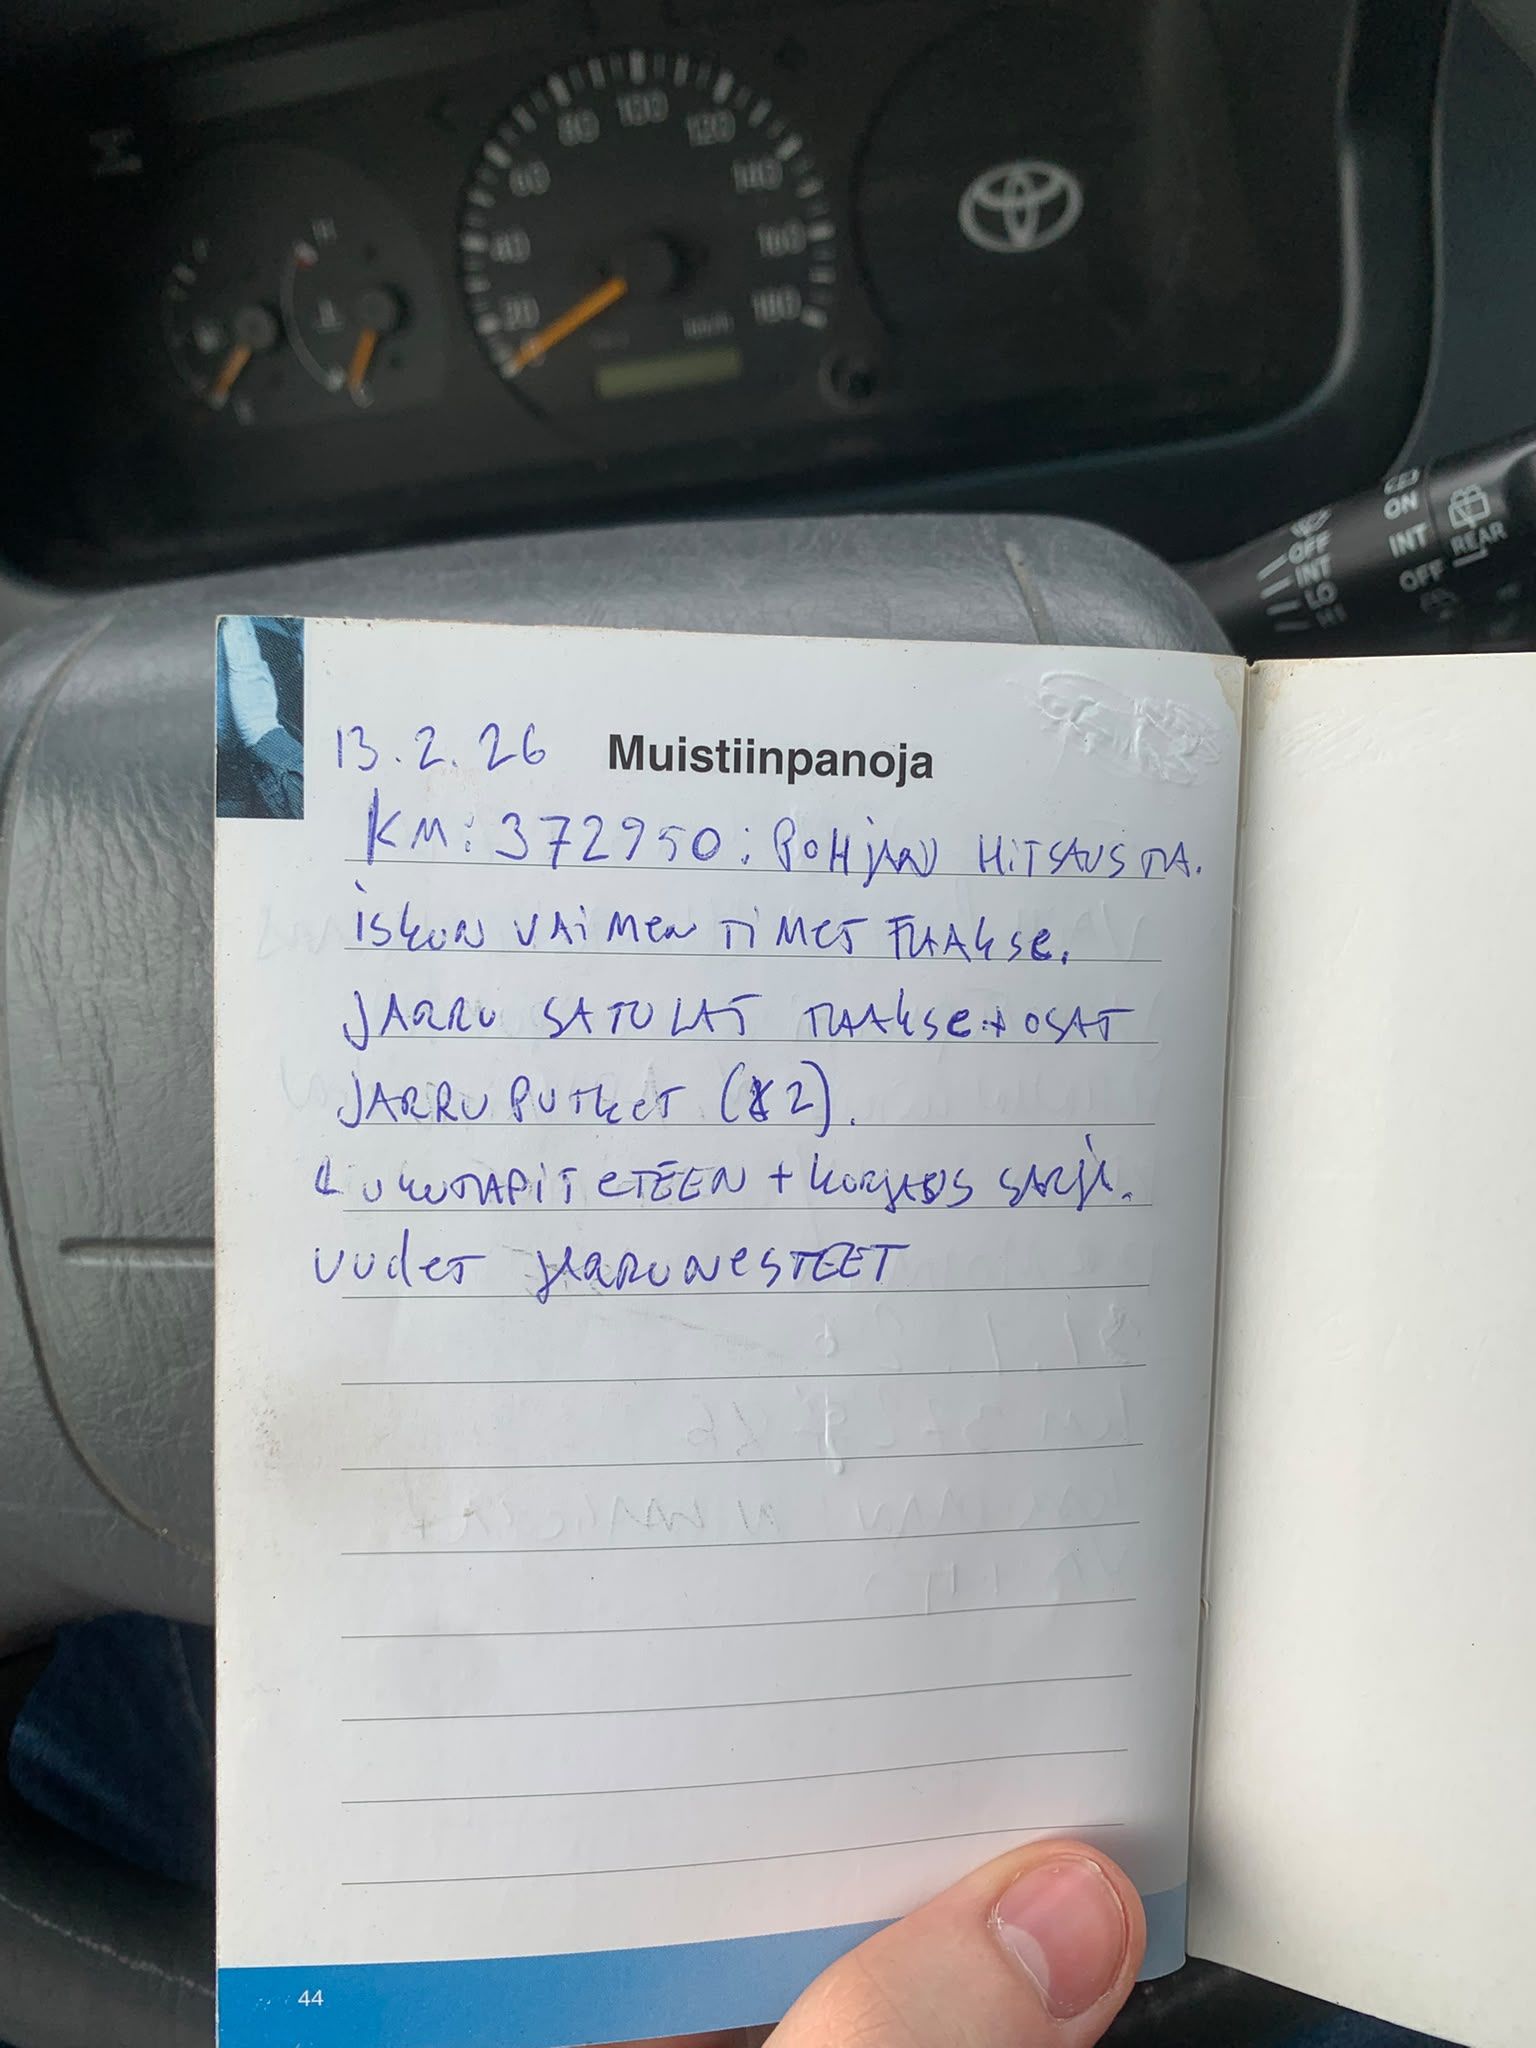 80 100 120
60 140
40 160
20 180
0 km/h
H
E C
OFF
INT
LO
HI
ON
INT
OFF
REAR
13.2.26 Muistiinpanoja
KM: 372950: POHJAN HITSAUSTA.
iskun VAiMENTiMET TAAKSE.
JARRU SATULAT TAAKSE + OSAT
JARRUPUTKET (X2).
LUKOTAPIT ETEEN + KORJAUS SARJA.
UUDET JARRUNESTEET
44